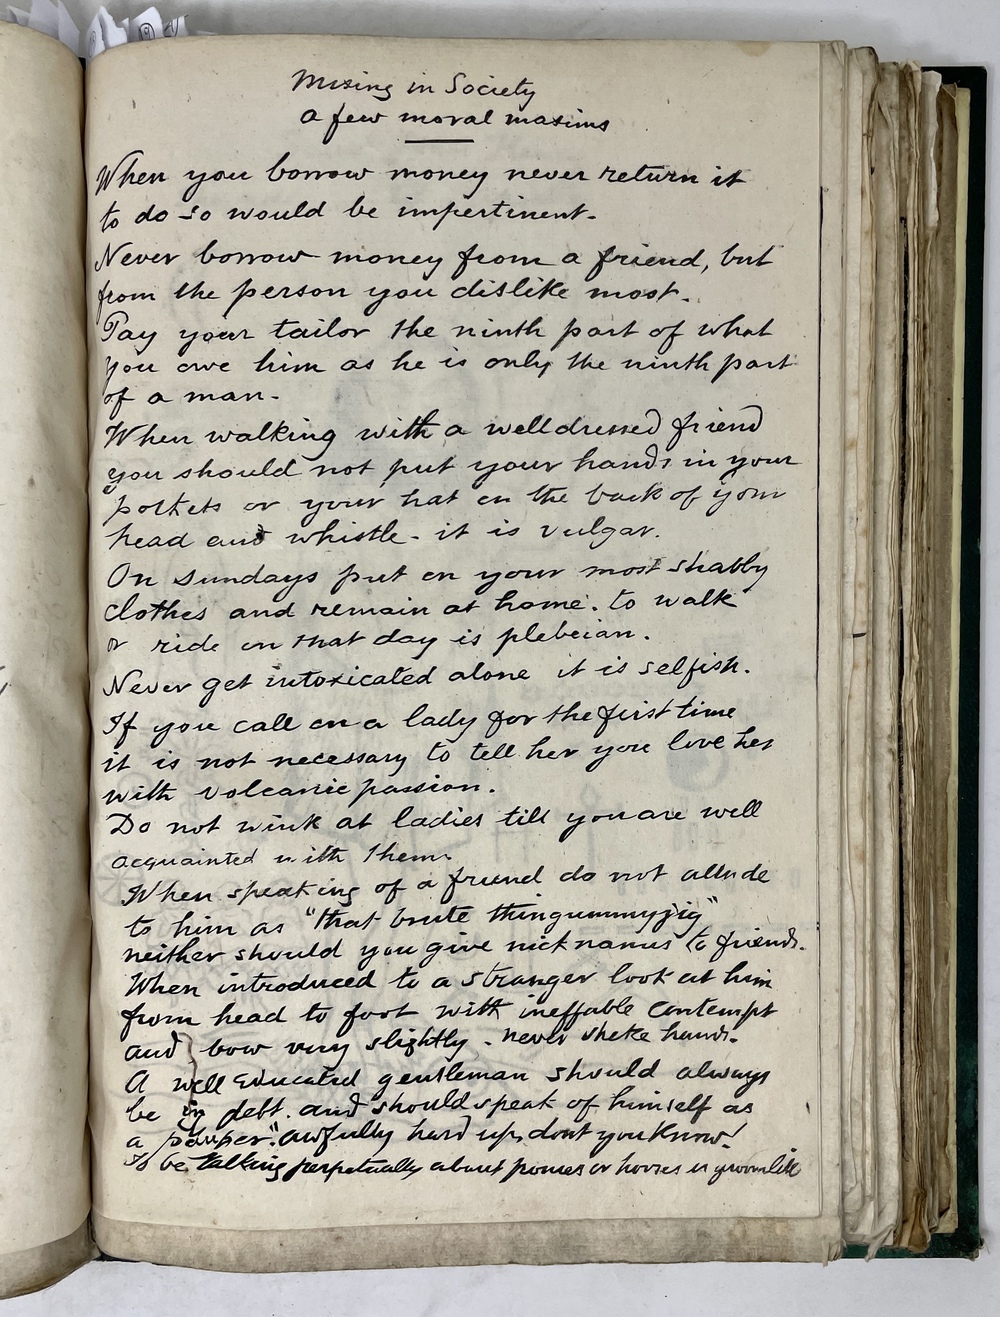 Mixing in Society
a few moral maxims
When you borrow money never return it
to do so would be impertinent.
Never borrow money from a friend, but
from the person you dislike most.
Pay your tailor the ninth part of what
you owe him as he is only the ninth part
of a man.
When walking with a welldressed friend
you should not put your hands in your
pockets or your hat on the back of your
head and whistle - it is vulgar.
On Sundays put on your most shabby
clothes and remain at home. to walk
or ride on that day is plebeian.
Never get intoxicated alone it is selfish.
If you call on a lady for the first time
it is not necessary to tell her you love her
with volcanic passion.
Do not wink at ladies till you are well
acquainted with them.
When speaking of a friend do not allude
to him as "that brute thingummyjig"
neither should you give nicknames to friends.
When introduced to a stranger look at him
from head to foot with ineffable contempt
and bow very slightly - never shake hands.
A well educated gentleman should always
be in debt. and should speak of himself as
a pauper. "awfully hard up, dont you know!
To be talking perpetually about ponies or horses is groomlike